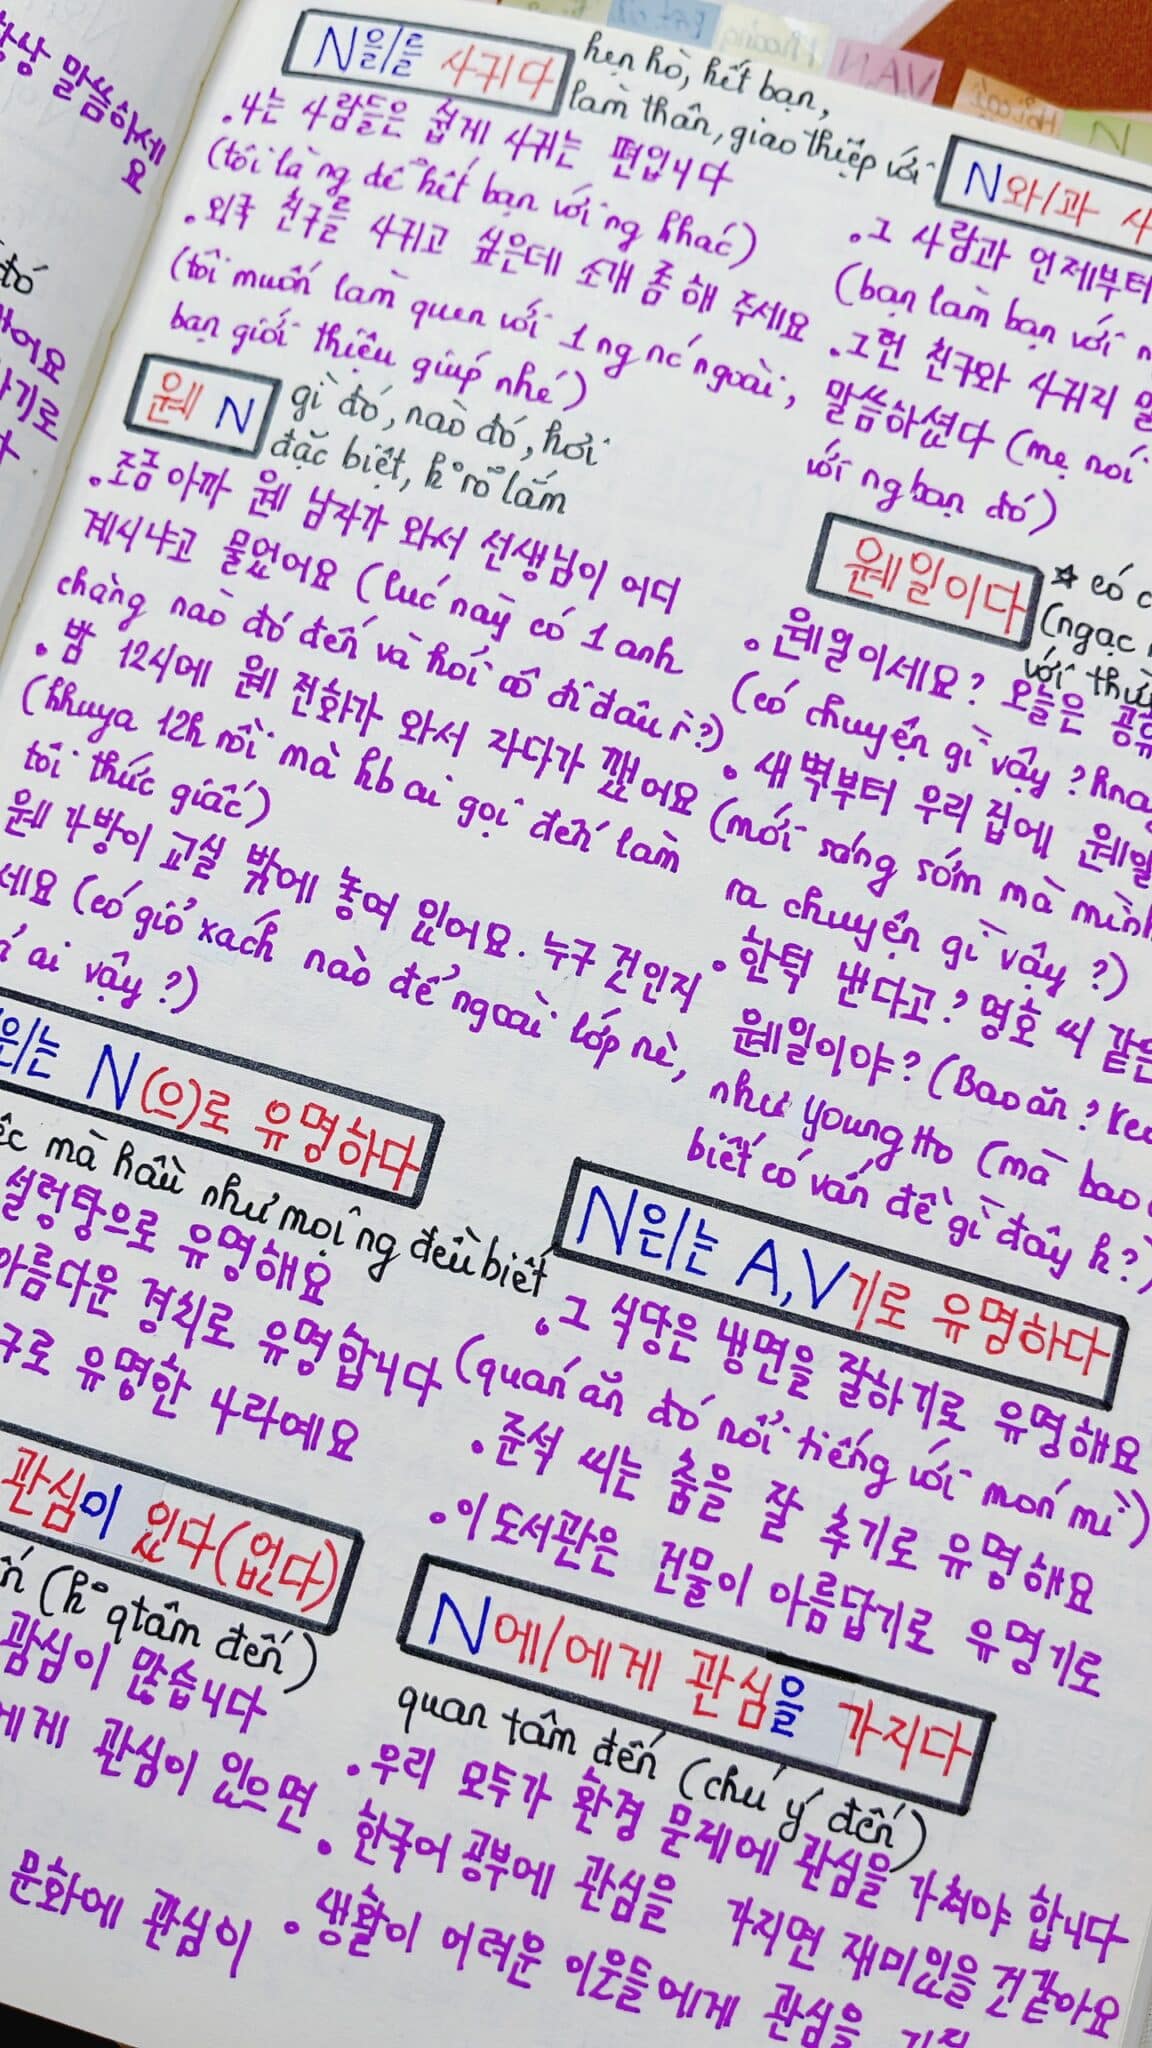 상 말씀하세
요
đó
어요
기로
다
N을/를 사귀다
hẹn hò, kết bạn,
làm thân, giao thiệp với
.나는 사람들은 쉽게 사귀는 편입니다
(tôi là ng dễ kết bạn với ng khác)
.외국 친구를 사귀고 싶은데 소개 좀 해 주세요
(tôi muốn làm quen với 1 ng nc ngoài,
bạn giới thiệu giúp nhé)
웬 N
gì đó, nào đó, hơi
đặc biệt, k rõ lắm
.조금 아까 웬 남자가 와서 선생님이 어디
계시냐고 물었어요 (lúc này có 1 anh
chàng nào đó đến và hỏi cô đi đâu r?)
.밤 12시에 웬 전화가 와서 자다가 깼어요
(khuya 12h rồi mà kb ai gọi đến làm
tôi thức giấc)
웬 가방이 교실 밖에 놓여 있어요. 누구 건인지
세요 (có giỏ xách nào để ngoài lớp nè,
ai vậy ?)
은/는 N(으)로 유명하다
mà hầu như mọi ng đều biết
설렁탕으로 유명해요
아름다운 경치로 유명합니다
구로 유명한 나라예요
관심이 있다(없다)
(k qtâm đến)
관심이 많습니다
에게 관심이 있으면
문화에 관심이
V/A, N
N
N와/과 사
.그 사람과 언제부터
(bạn làm bạn với
.그런 친구와 사귀지 말
말씀하셨다 (mẹ nói
với ng bạn đó)
웬일이다
☆ có c
(ngạc
với
.웬일이세요? 오늘은 공
(có chuyện gì vậy ?
.새벽부터 우리 집에 웬일
(mới sáng sớm mà mình
ra chuyện gì vậy ?)
.한턱 낸다고? 명호 씨 같은
웬일이야? (Bao ăn?
như young Ho (mà bao
biết có vấn đề gì đây k?)
N은/는 A,V기로 유명하다
.그 식당은 냉면을 잘하기로 유명해요
(quán ăn đó nổi tiếng với món mì)
.준석 씨는 춤을 잘 추기로 유명해요
.이 도서관은 건물이 아름답기로 유명기로
N에/에게 관심을 가지다
quan tâm đến (chú ý đến)
.우리 모두가 환경 문제에 관심을 가져야 합니다
.한국어 공부에 관심을 가지면 재미있을 건같아요
.생활이 어려운 이웃들에게 관심을